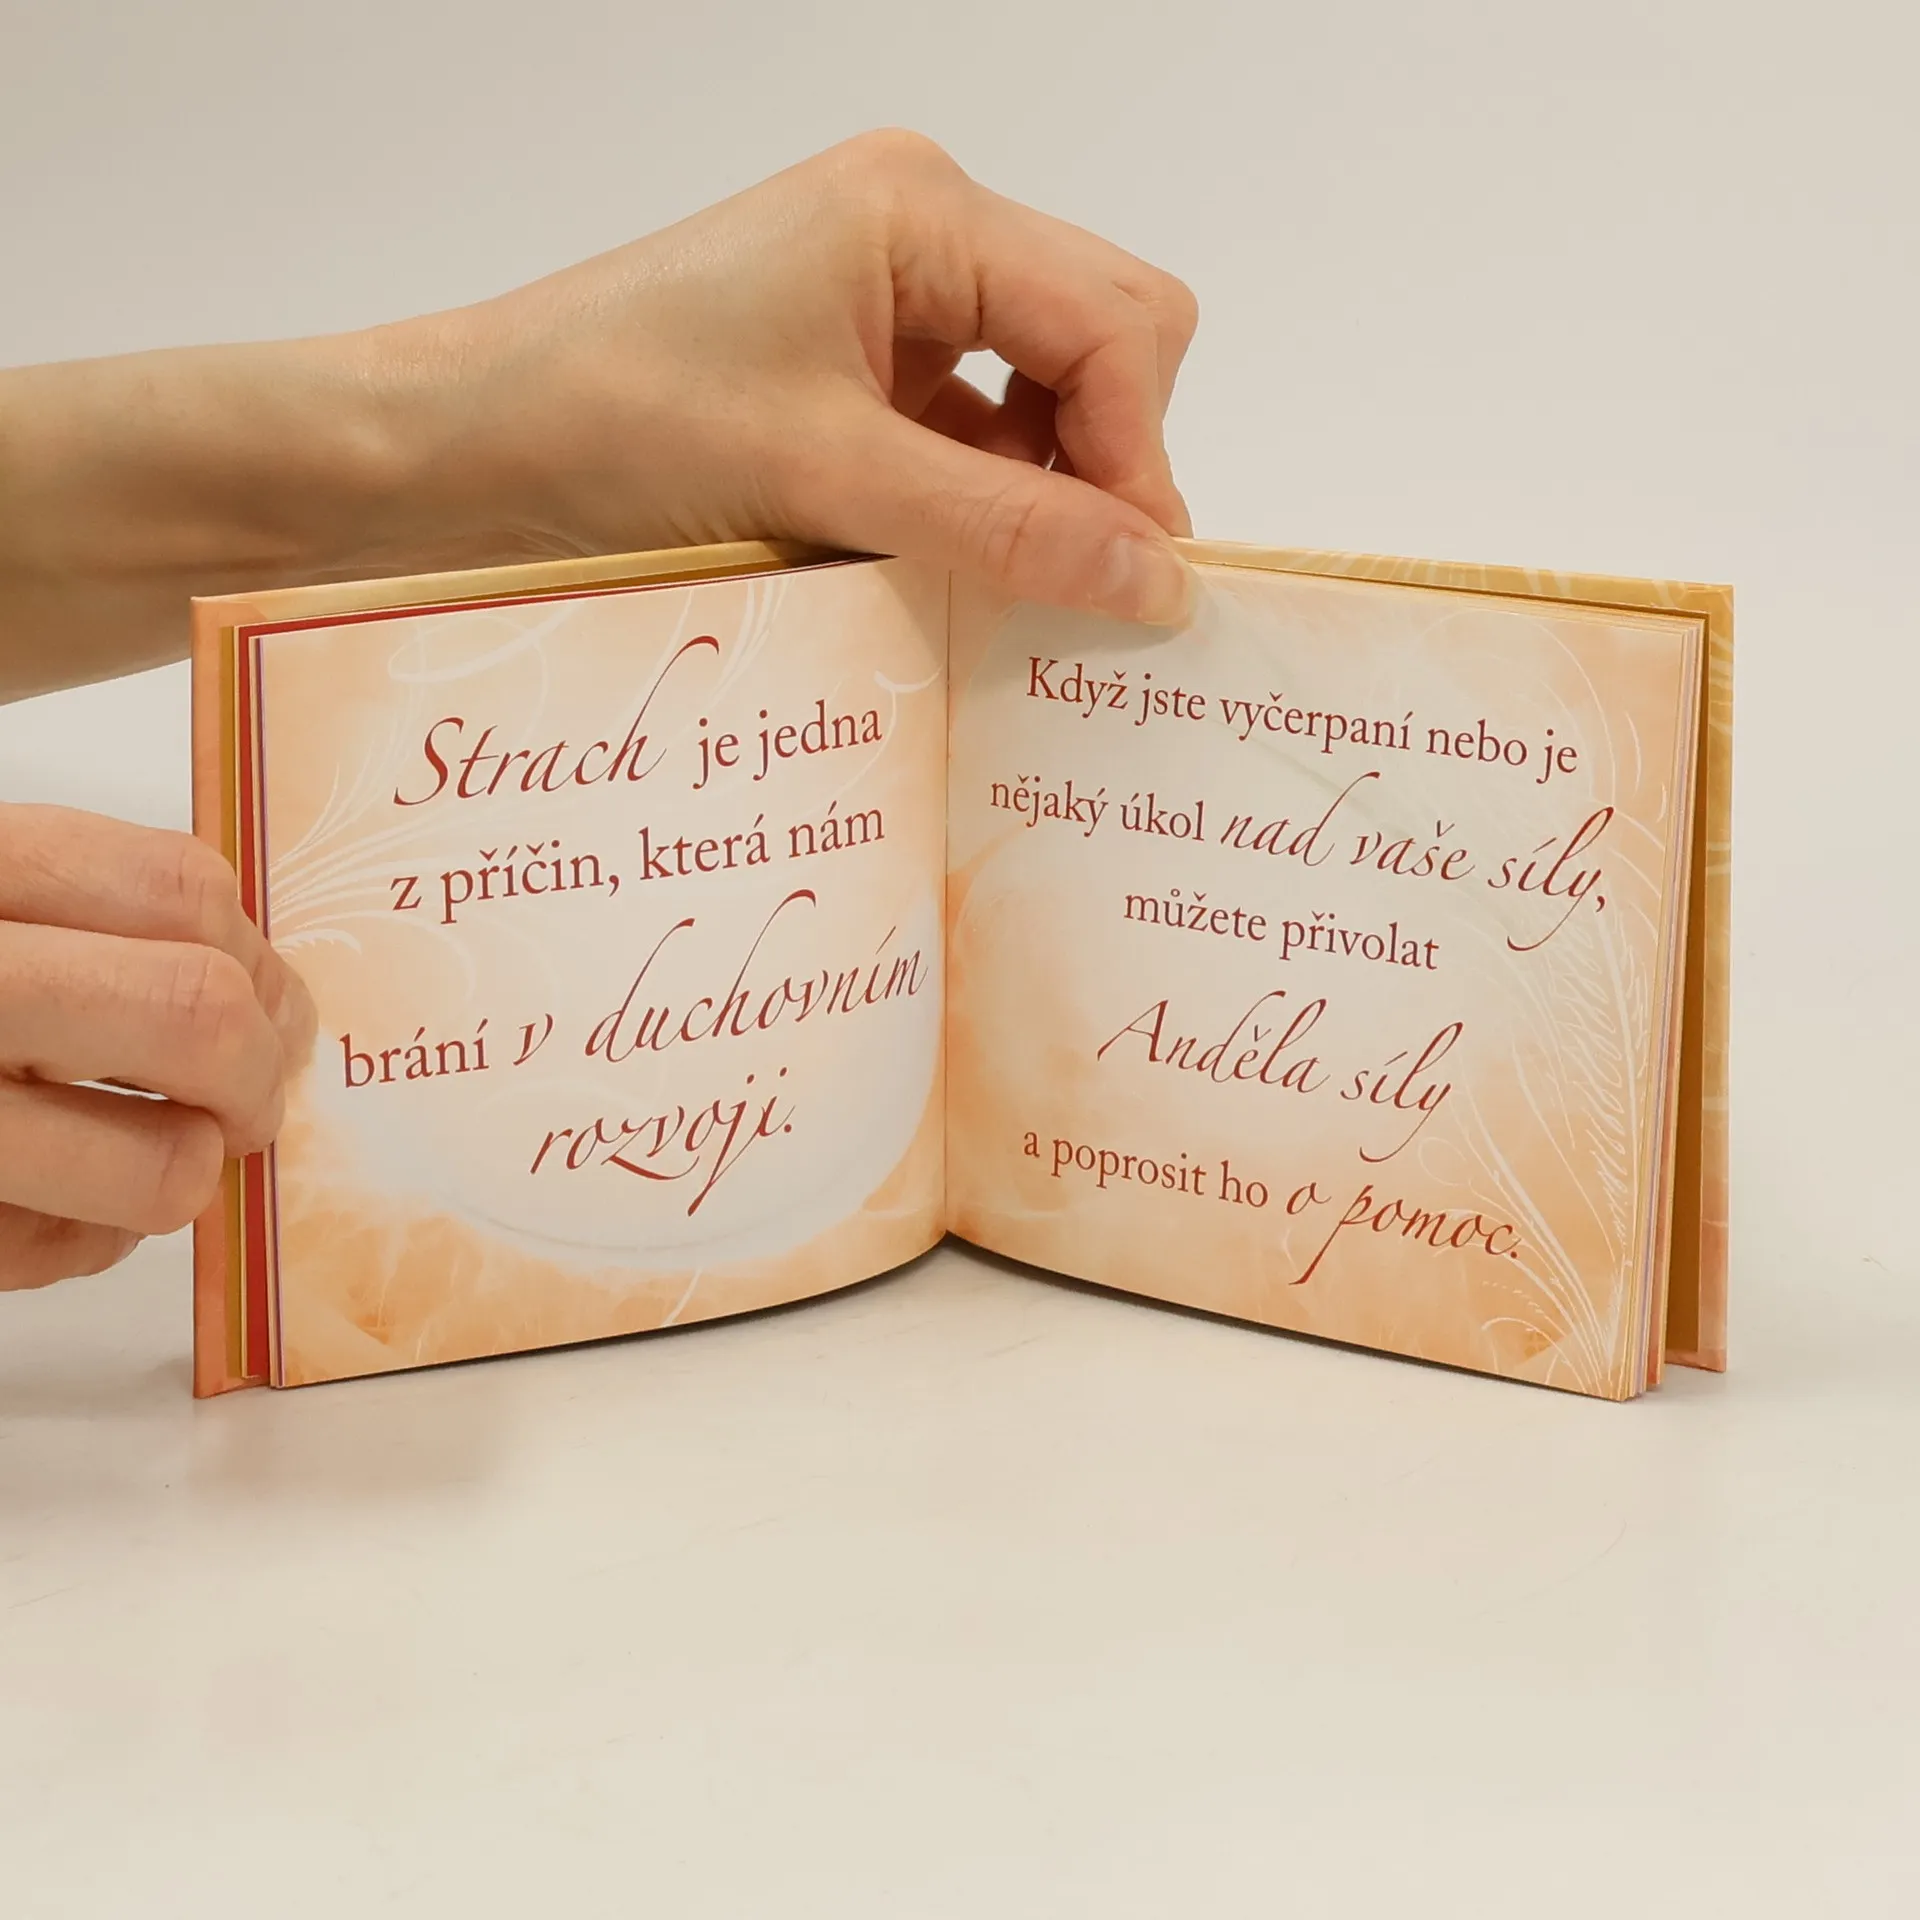 Strach je jedna
z příčin, která nám
brání v duchovním
rozvoji.
Když jste vyčerpaní nebo je
nějaký úkol nad vaše síly,
můžete přivolat
Anděla síly
a poprosit ho o pomoc.